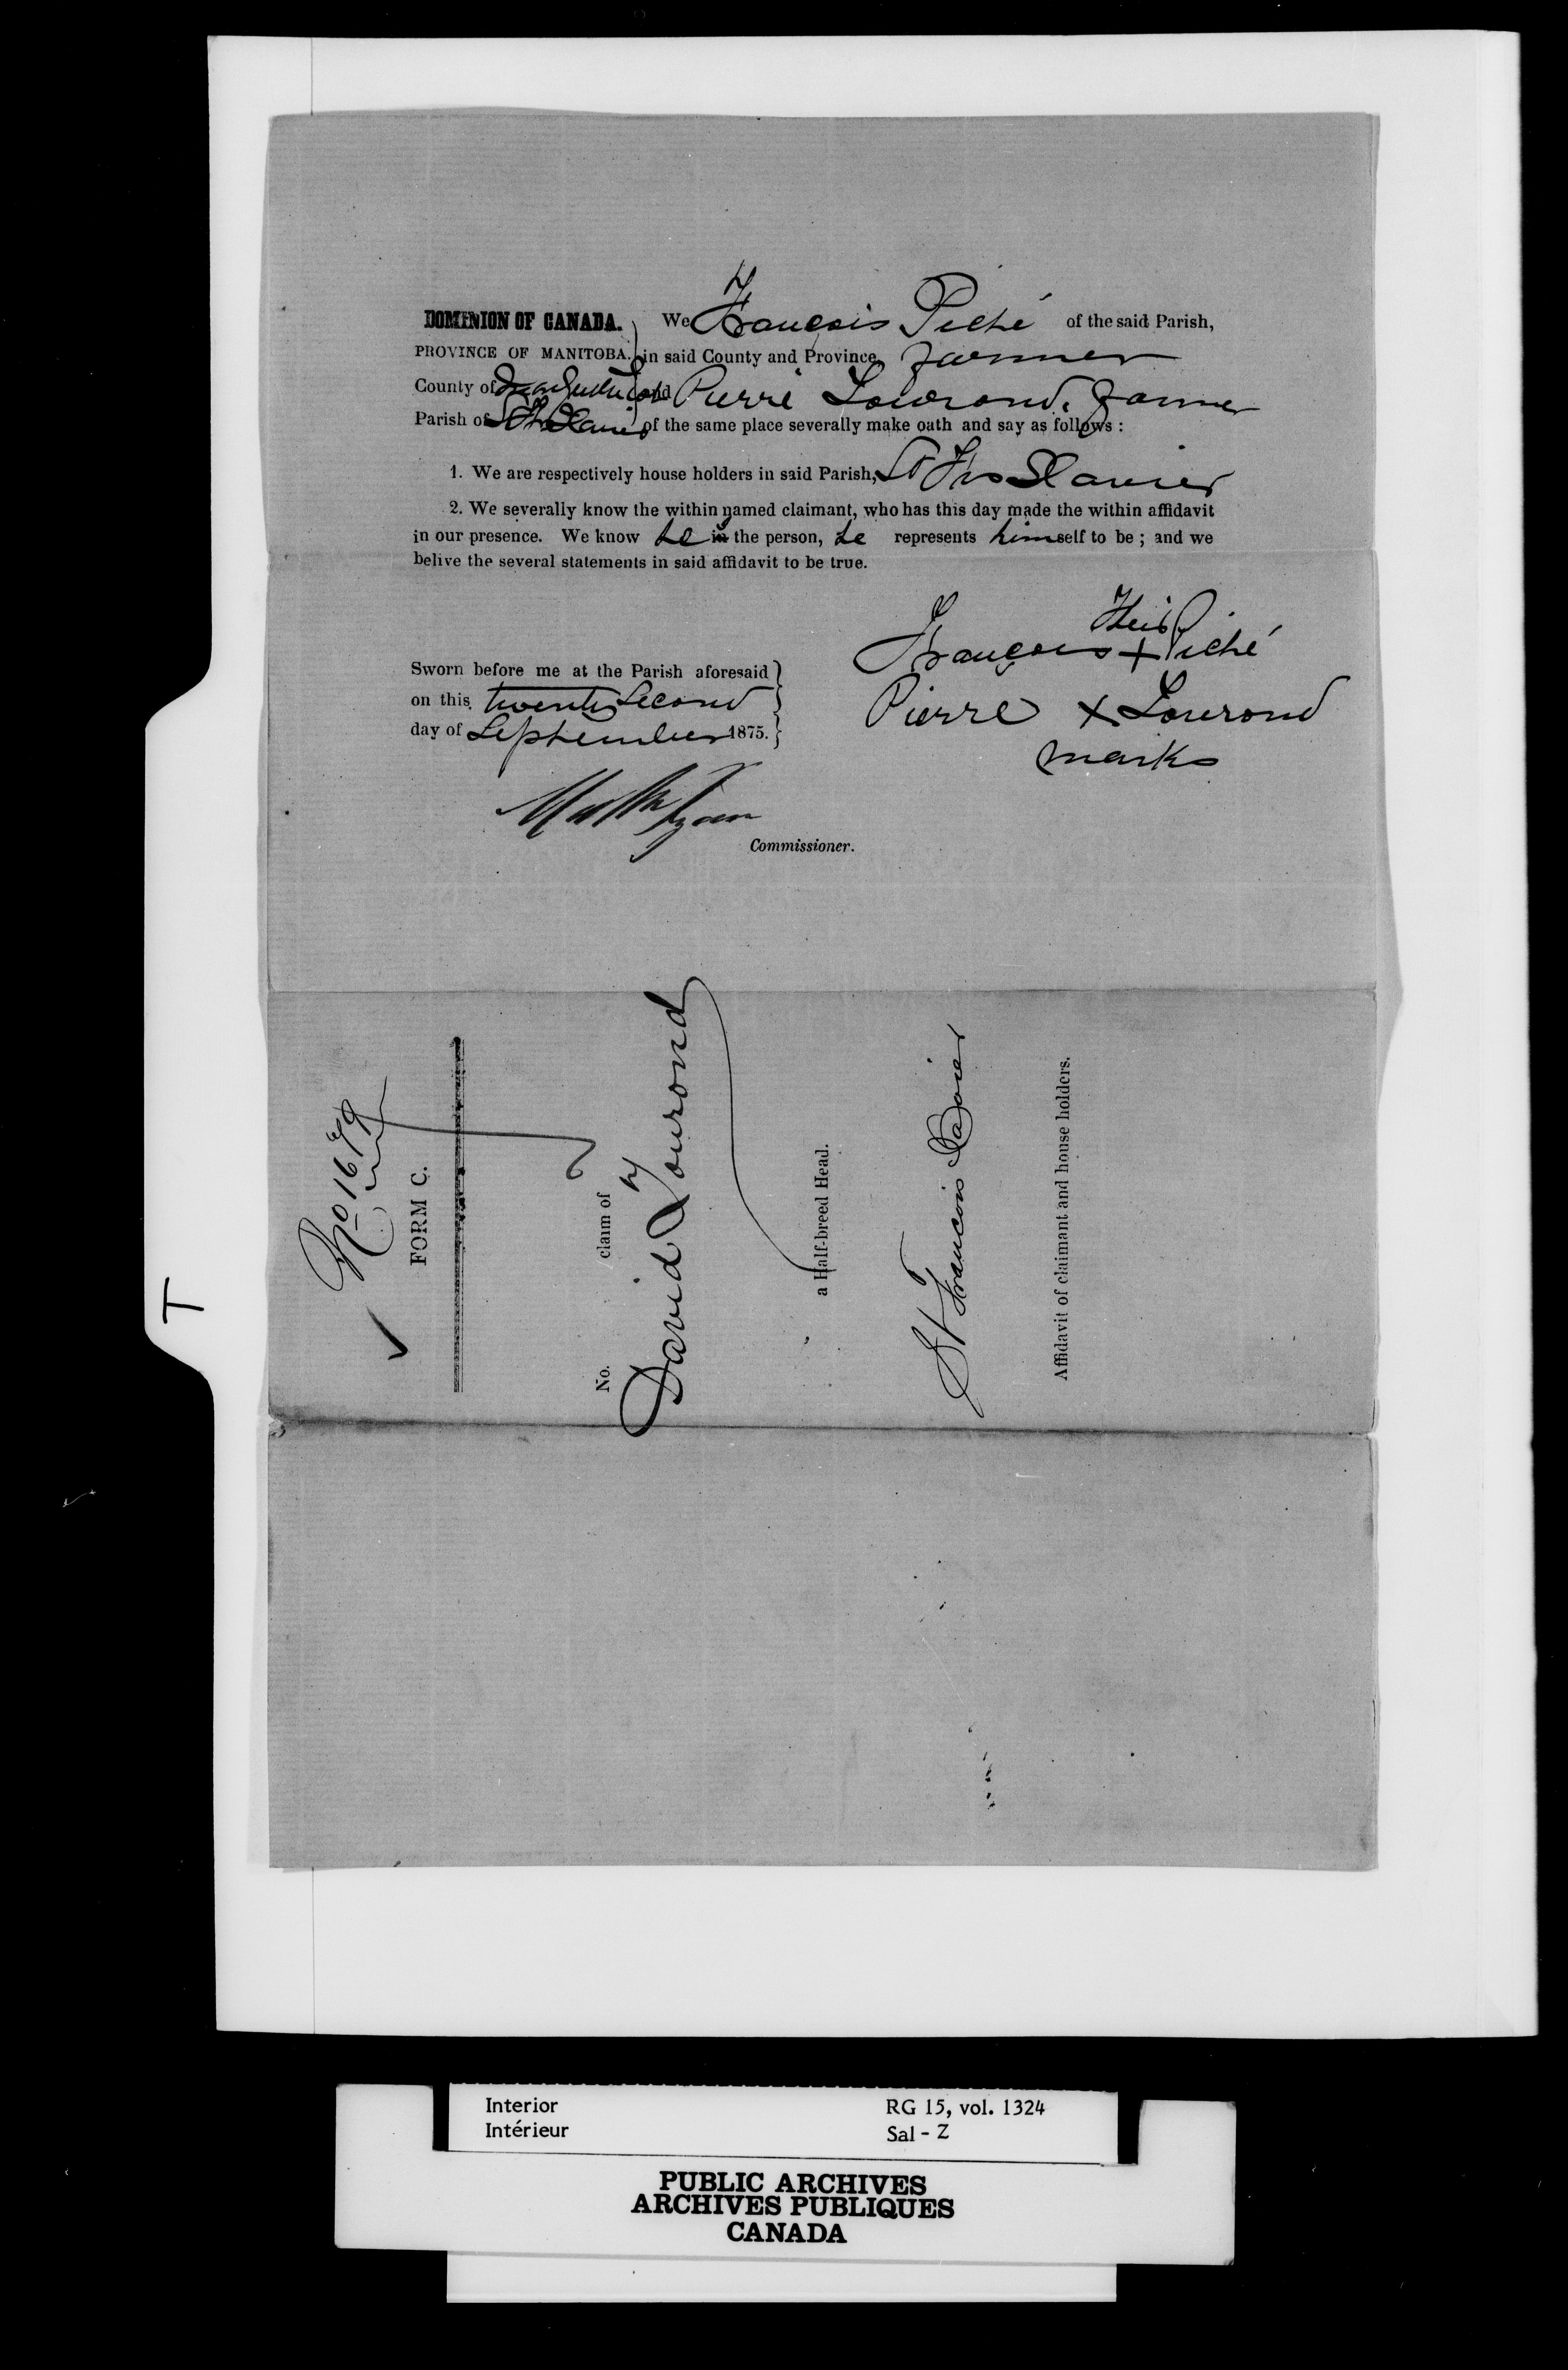 DOMINION OF CANADA. We François Piché of the said Parish,
PROVINCE OF MANITOBA. in said County and Province farmer
County of Marquette and Pierre Lowrond, farmer
Parish of St Frs Xavier of the same place severally make oath and say as follows :
1. We are respectively house holders in said Parish, St Frs Xavier
2. We severally know the within named claimant, who has this day made the within affidavit
in our presence. We know he is the person, he represents himself to be ; and we
belive the several statements in said affidavit to be true.
Their
François + Piché
Pierre x Lowrond
marks
Sworn before me at the Parish aforesaid
on this twenty second
day of September 1875.
Commissioner.
No 1679
FORM C.
No. claim of
David Tourond
a Half-breed Head.
St Francois Xavier
Affidavit of claimant and house holders.
T
Interior RG 15, vol. 1324
Intérieur Sal - Z
PUBLIC ARCHIVES
ARCHIVES PUBLIQUES
CANADA